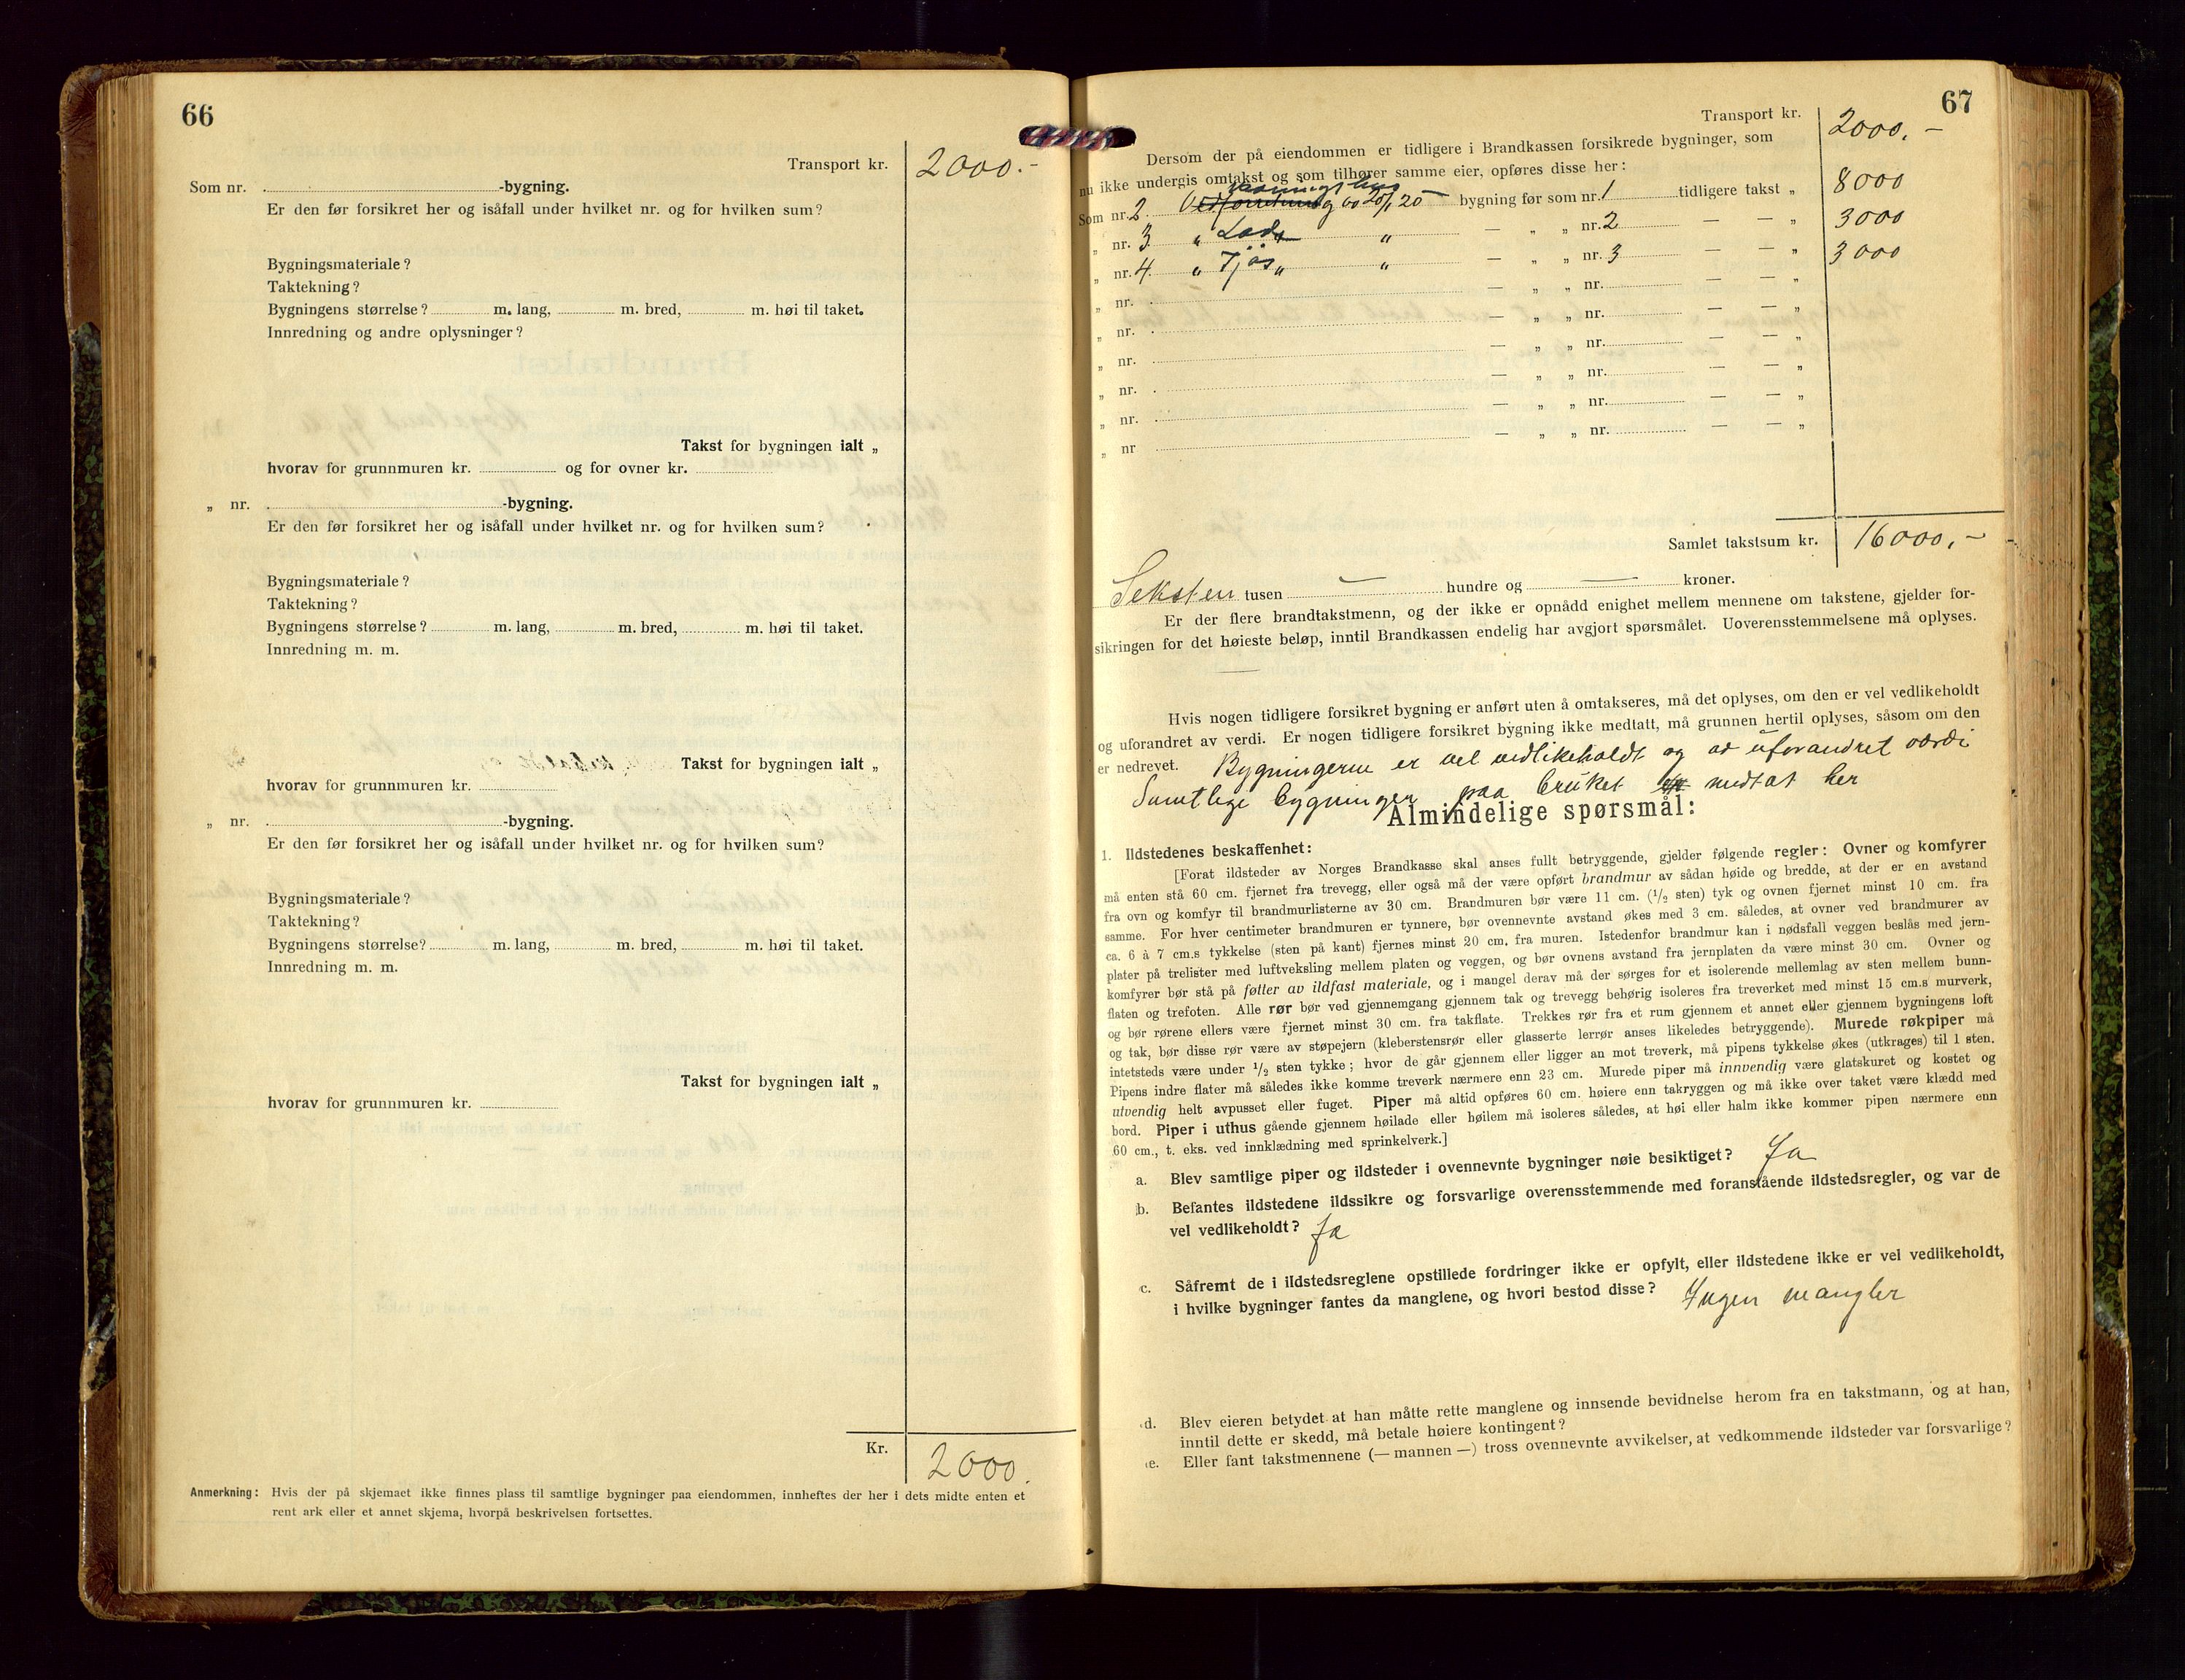 66
Transport kr. 2000.-
Som nr. -bygning.
Er den før forsikret her og isåfall under hvilket nr. og for hvilken sum?
Bygningsmateriale?
Taktekning?
Bygningens størrelse? m. lang, m. bred, m. høi til taket.
Innredning og andre oplysninger?
Takst for bygningen ialt „
hvorav for grunnmuren kr. og for ovner kr.
„ nr. -bygning.
Er den før forsikret her og isåfall under hvilket nr. og for hvilken sum?
Bygningsmateriale?
Taktekning?
Bygningens størrelse? m. lang, m. bred, m. høi til taket.
Innredning m. m.
Takst for bygningen ialt „
hvorav for grunnmuren kr.
„ nr. -bygning.
Er den før forsikret her og isåfall under hvilket nr. og for hvilken sum?
Bygningsmateriale?
Taktekning?
Bygningens størrelse? m. lang, m. bred, m. høi til taket.
Innredning m. m.
Takst for bygningen ialt „
hvorav for grunnmuren kr.
Kr. 2000.
Anmerkning: Hvis der på skjemaet ikke finnes plass til samtlige bygninger paa eiendommen, innheftes der her i dets midte enten et
rent ark eller et annet skjema, hvorpå beskrivelsen fortsettes.
67
Transport kr. 2000.-
Dersom der på eiendommen er tidligere i Brandkassen forsikrede bygninger, som
nu ikke undergis omtakst og som tilhører samme eier, opføres disse her:
Som nr. 2. 20/1 20 — bygning før som nr. 1 tidligere takst „ 8000
„ nr. 3 „ Lade „ — „ „ nr. 2 — — „ 3000
„ nr. 4. „ Fjøs „ — „ „ nr. 3 — — „ 3000
„ nr. — „ „ nr. — — „
„ nr. — „ „ nr. — — „
„ nr. — „ „ nr. — — „
„ nr. — „ „ nr. — — „
„ nr. — „ „ nr. — — „
„ nr — „ „ nr. — — „
Samlet takstsum kr. 16000,-
Seksten tusen — hundre og — kroner.
Er der flere brandtakstmenn, og der ikke er opnådd enighet mellem mennene om takstene, gjelder for-
sikringen for det høieste beløp, inntil Brandkassen endelig har avgjort spørsmålet. Uoverensstemmelsene må oplyses.
Hvis nogen tidligere forsikret bygning er anført uten å omtakseres, må det oplyses, om den er vel vedlikeholdt
og uforandret av verdi. Er nogen tidligere forsikret bygning ikke medtatt, må grunnen hertil oplyses, såsom om den
er nedrevet. Bygningerne er vel vedlikeholdt og av uforandret værdi
Samtlige bygninger paa bruket medtat her
Almindelige spørsmål:
1. Ildstedenes beskaffenhet:
[Forat ildsteder av Norges Brandkasse skal anses fullt betryggende, gjelder følgende regler: Ovner og komfyrer
må enten stå 60 cm. fjernet fra trevegg, eller også må der være opført brandmur av sådan høide og bredde, at der er en avstand
fra ovn og komfyr til brandmurlisterne av 30 cm. Brandmuren bør være 11 cm. (1/2 sten) tyk og ovnen fjernet minst 10 cm. fra
samme. For hver centimeter brandmuren er tynnere, bør ovennevnte avstand økes med 3 cm. således, at ovner ved brandmurer av
ca. 6 à 7 cm.s tykkelse (sten på kant) fjernes minst 20 cm. fra muren. Istedenfor brandmur kan i nødsfall veggen beslås med jern-
plater på trelister med luftveksling mellem platen og veggen, og bør ovnens avstand fra jernplaten da være minst 30 cm. Ovner og
komfyrer bør stå på føtter av ildfast materiale, og i mangel derav må der sørges for et isolerende mellemlag av sten mellem bunn-
flaten og trefoten. Alle rør bør ved gjennemgang gjennem tak og trevegg behørig isoleres fra treverket med minst 15 cm.s murverk,
og bør rørene ellers være fjernet minst 30 cm. fra takflate. Trekkes rør fra et rum gjennem et annet eller gjennem bygningens loft
og tak, bør disse rør være av støpejern (kleberstensrør eller glasserte lerrør anses likeledes betryggende). Murede røkpiper må
intetsteds være under 1/2 sten tykke; hvor de går gjennem eller ligger an mot treverk, må pipens tykkelse økes (utkrages) til 1 sten.
Pipens indre flater må således ikke komme treverk nærmere enn 23 cm. Murede piper må innvendig være glatskuret og kostet og
utvendig helt avpusset eller fuget. Piper må altid opføres 60 cm. høiere enn takryggen og må ikke over taket være klædd med
bord. Piper i uthus gående gjennem høilade eller høilem må isoleres således, at høi eller halm ikke kommer pipen nærmere enn
60 cm., t. eks. ved innklædning med sprinkelverk.]
a. Blev samtlige piper og ildsteder i ovennevnte bygninger nøie besiktiget? Ja
b. Befantes ildstedene ildssikre og forsvarlige overensstemmende med foranstående ildstedsregler, og var de
vel vedlikeholdt? Ja
c. Såfremt de i ildstedsreglene opstillede fordringer ikke er opfylt, eller ildstedene ikke er vel vedlikeholdt,
i hvilke bygninger fantes da manglene, og hvori bestod disse? Ingen mangler
d. Blev eieren betydet at han måtte rette manglene og innsende bevidnelse herom fra en takstmann, og at han,
inntil dette er skedd, må betale høiere kontingent?
e. Eller fant takstmennene (— mannen —) tross ovennevnte avvikelser, at vedkommende ildsteder var forsvarlige?